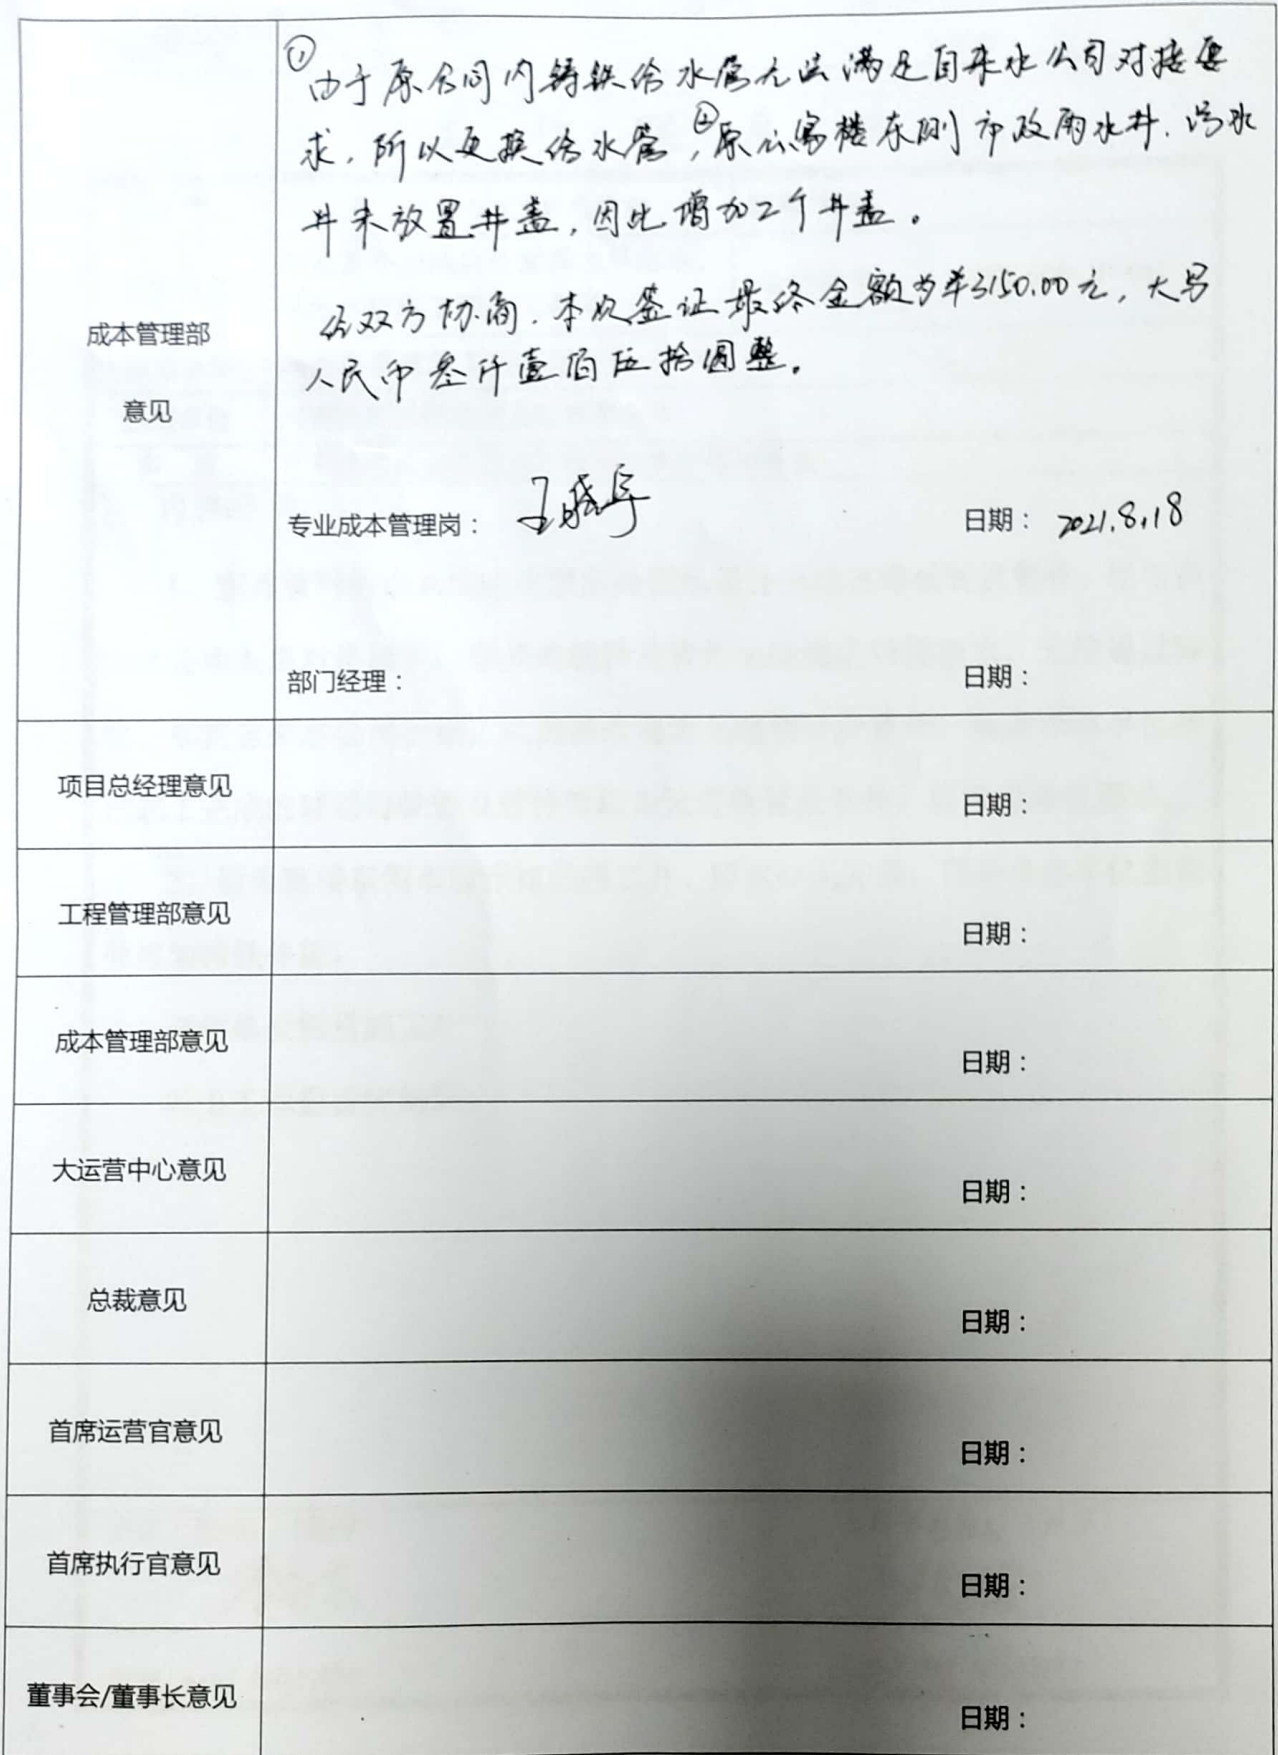 ①由于原合同内铸铁给水管无法满足自来水公司对接要
求，所以更换给水管，②原公寓楼东侧市政雨水井、污水
井未放置井盖，因此增加2个井盖。
经双方协商，本次签证最终金额为¥3150.00元，大写
人民币叁仟壹佰伍拾圆整。
成本管理部
意见
专业成本管理岗： 日期：2021.8.18
部门经理： 日期：
项目总经理意见 日期：
工程管理部意见 日期：
成本管理部意见 日期：
大运营中心意见 日期：
总裁意见 日期：
首席运营官意见 日期：
首席执行官意见 日期：
董事会/董事长意见 日期：